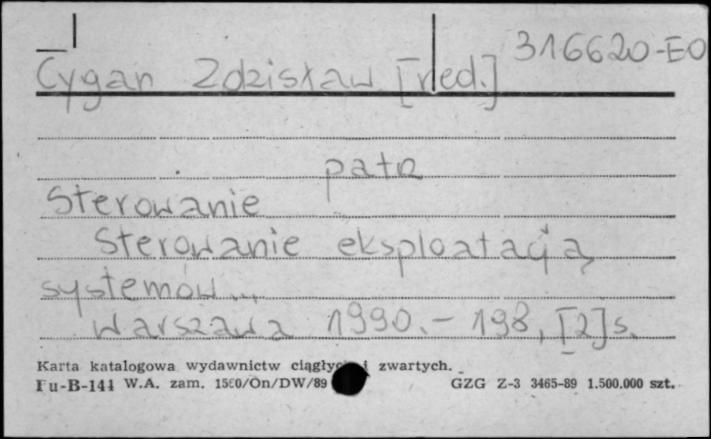 316620-EO
Cygan Zdzisław [red.]
patrz
Sterowanie
Sterowanie eksploatacją
systemów...
Warszawa 1990.- 198, [2] s.
Karta katalogowa wydawnictw ciągłych i zwartych.
Pu-B-144 W.A. zam. 1580/On/DW/89 GZG Z-3 3465-89 1.500.000 szt.